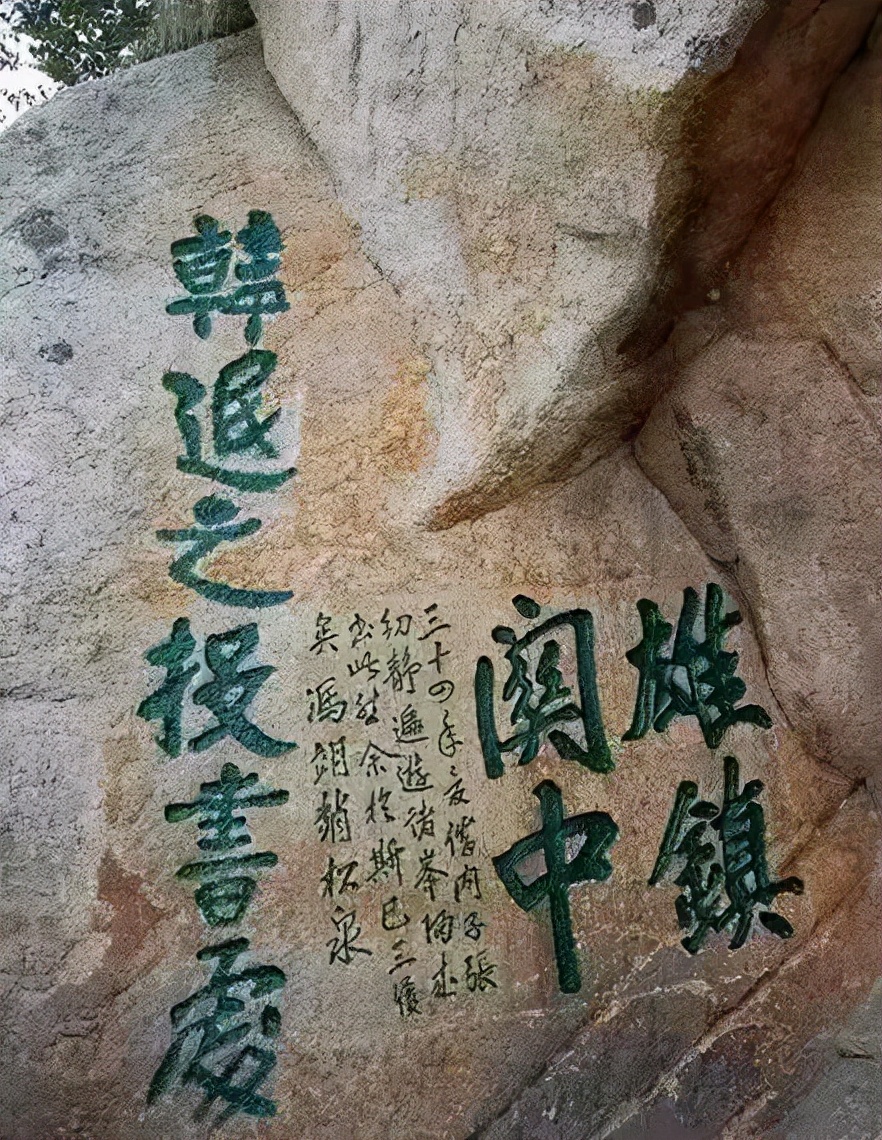 雄鎮
關中
三十四年之夏偕内子張
幼靜遍遊諸峯均
此余於斯已三度
矣馮翊松泉
韓退之投書處